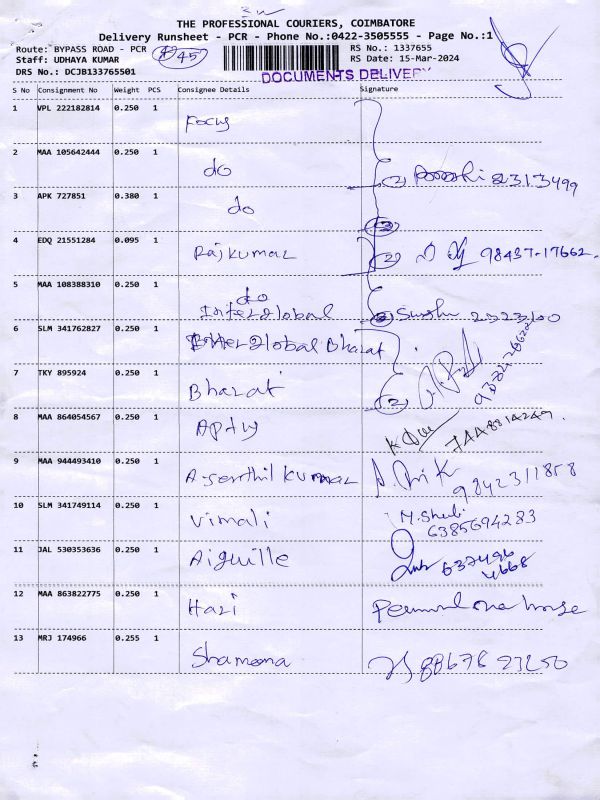 THE PROFESSIONAL COURIERS, COIMBATORE
Delivery Runsheet - PCR - Phone No.:0422-3505555 - Page No.:1
Route: BYPASS ROAD - PCR
RS No.: 1337655
Staff: UDHAYA KUMAR
45
RS Date: 15-Mar-2024
DRS No.: DCJB133765501
DOCUMENTS DELIVERY
S No Consignment No Weight PCS Consignee Details Signature
1 VPL 222182814 0.250 1 Focus
2 MAA 105642444 0.250 1 do
3 APK 727851 0.380 1 do
4 EDQ 21551284 0.095 1 Rajkumar 98437-17662
5 MAA 108388310 0.250 1 do
Interglobal
6 SLM 341762827 0.250 1 Bharat
7 TKY 895924 0.250 1 Bharat
8 MAA 864054567 0.250 1
9 MAA 944493410 0.250 1 A. Senthil Kumar 9842311858
10 SLM 341749114 0.250 1 Vimali 6385694283
11 JAL 530353636 0.250 1 Aiguille
12 MAA 863822775 0.250 1 Hari
13 MRJ 174966 0.255 1 Shameema